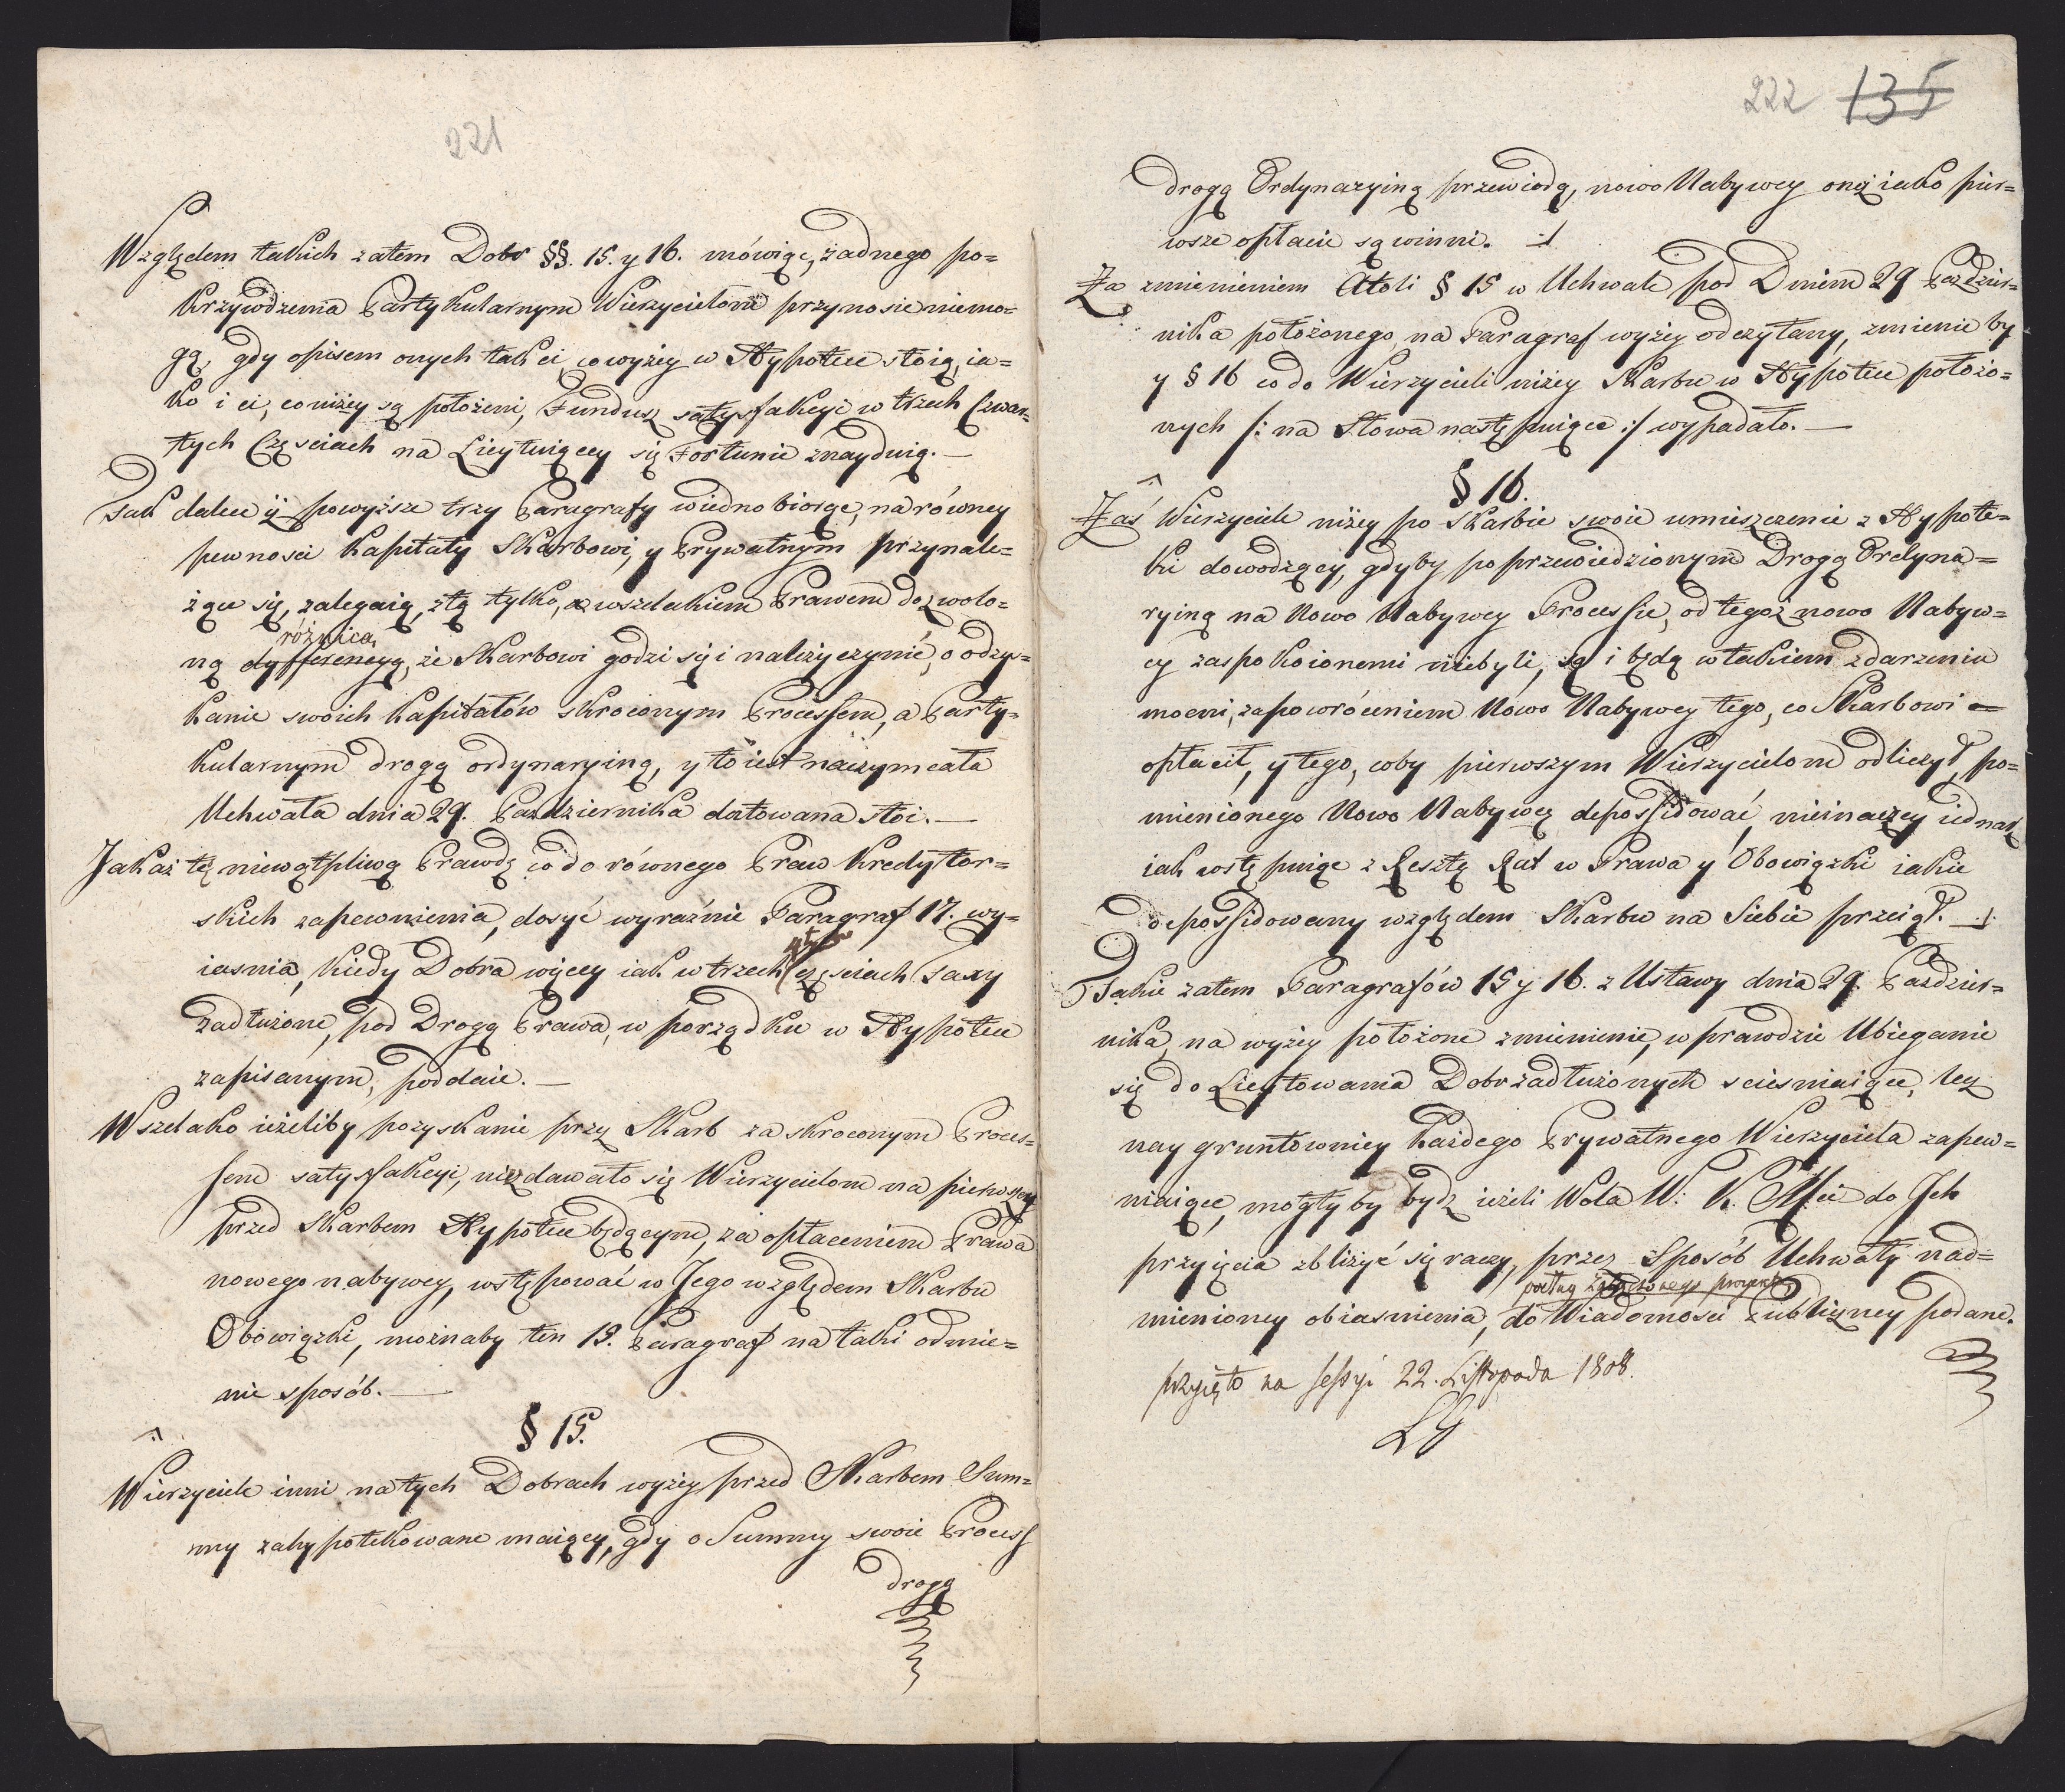 221
Względem takich zatem Dobr §§. 15. y 16. mówiąc, żadnego po=
krzywdzenia Partykularnym Wierzycielom przynosić niemo=
gą, gdy opisem onych tak ci co wyżey w Hypotece stoią, ia=
ko i ci, co niżey są położeni, Fundusz satysfakcyi w trzech Czwar=
tych Częsciach na Licytuiącey się Fortunie znayduią. —
Jak dalece iż powyższe trzy Paragrafy wiedno biorąc, na równey
pewnosci Kapitały Skarbowi, y Prywatnym przynale=
żące się, zalegaią, z tą tylko, wszelakiem Prawem dozwolo=
różnicą
ną dyfferencyą, że Skarbowi godzi się i należy czynić, o odzys=
kanie swoich Kapitałów skroconym Processem, a Party=
kularnym drogą ordynaryiną, y to iest na czym cała
Uchwała dnia 29. Pazdziernika datowana stoi. —
Jakaż tę niewątpliwą Prawdę co do równego Praw Kredytor=
skich zapewnienia, dosyć wyraźnie Paragraf 17. wy=
iasnia, kiedy Dobra więcey iak w trzech Częsciach Taxy
zadłużone, pod Drogą Prawa, w porządku w Hypotece
zapisanym, poddaie. —
Wszelako ieżeliby pozyskanie przez Skarb za skroconym Proces=
sem satysfakcyi, niezdawało się Wierzycielom na pierwszey
przed Skarbem Hypotece będącym, za opłaceniem Prawa
nowego nabywcy, wstępować w Jego względem Skarbu
Obowiązki, możnaby ten 15. Paragraf na taki odmie=
nić sposób. —
§ 15.
Wierzyciele inni na tych Dobrach wyżey przed Skarbem Sum=
my zahypotekowane maiący, gdy o Summy swoie Process
drogą
222 135
drogą Ordynaryiną przewiodą, nowo Nabywcy onęż iako pier=
wsze opłacić są winni. :/
Za zmienieniem Atoli § 15 w Uchwale pod Dniem 29 Pazdzier=
nika położonego, na Paragraf wyżey odczytany, zmienić by
y § 16 co do Wierzycieli niżey Skarbu w Hypotece położo=
nych /: na Słowa następuiące :/ wypadało. —
§ 16.
Zaś Wierzyciele niżey po Skarbie swoie umieszczenie z Hypote=
ki dowodzący, gdyby po przewiedzionym Drogą Ordyna=
ryiną na Nowo Nabywcy Processie, od tegoż nowo Nabyw=
cy zaspokoionemi niebyli, są i będą w takiem zdarzeniu
mocni, za powróceniem Nowo Nabywcy tego, co Skarbowi
opłacił, y tego, coby pierwszym Wierzycielom odliczył, po=
mienionego Nowo Nabywcę depossidować, nieinaczey iednak
iak wstępuiąc z Resztę Rat w Prawa y Obowiązki iakie
depossidowany względem Skarbu na Siebie przeiął. :/:
Takie zatem Paragrafów 15 y 16. z Ustawy dnia 29. Pazdzier=
nika, na wyżey położone zmienienie, w prawdzie Ubieganie
się do Licytowania Dobr zadłużonych scieśniaiące, lecz
nay gruntowniey każdego Prywatnego Wierzyciela zapew=
niaiące, mogłyby bydz ieżeli Wola W: K. Mci do Jch
przyięcia zbliżyć się raczy, przez Sposób Uchwały nad=
podług
mienioney obiasnienia, do Wiadomosci Publiczney podane.
przyięto na sessyi 22. Listopada 1808.